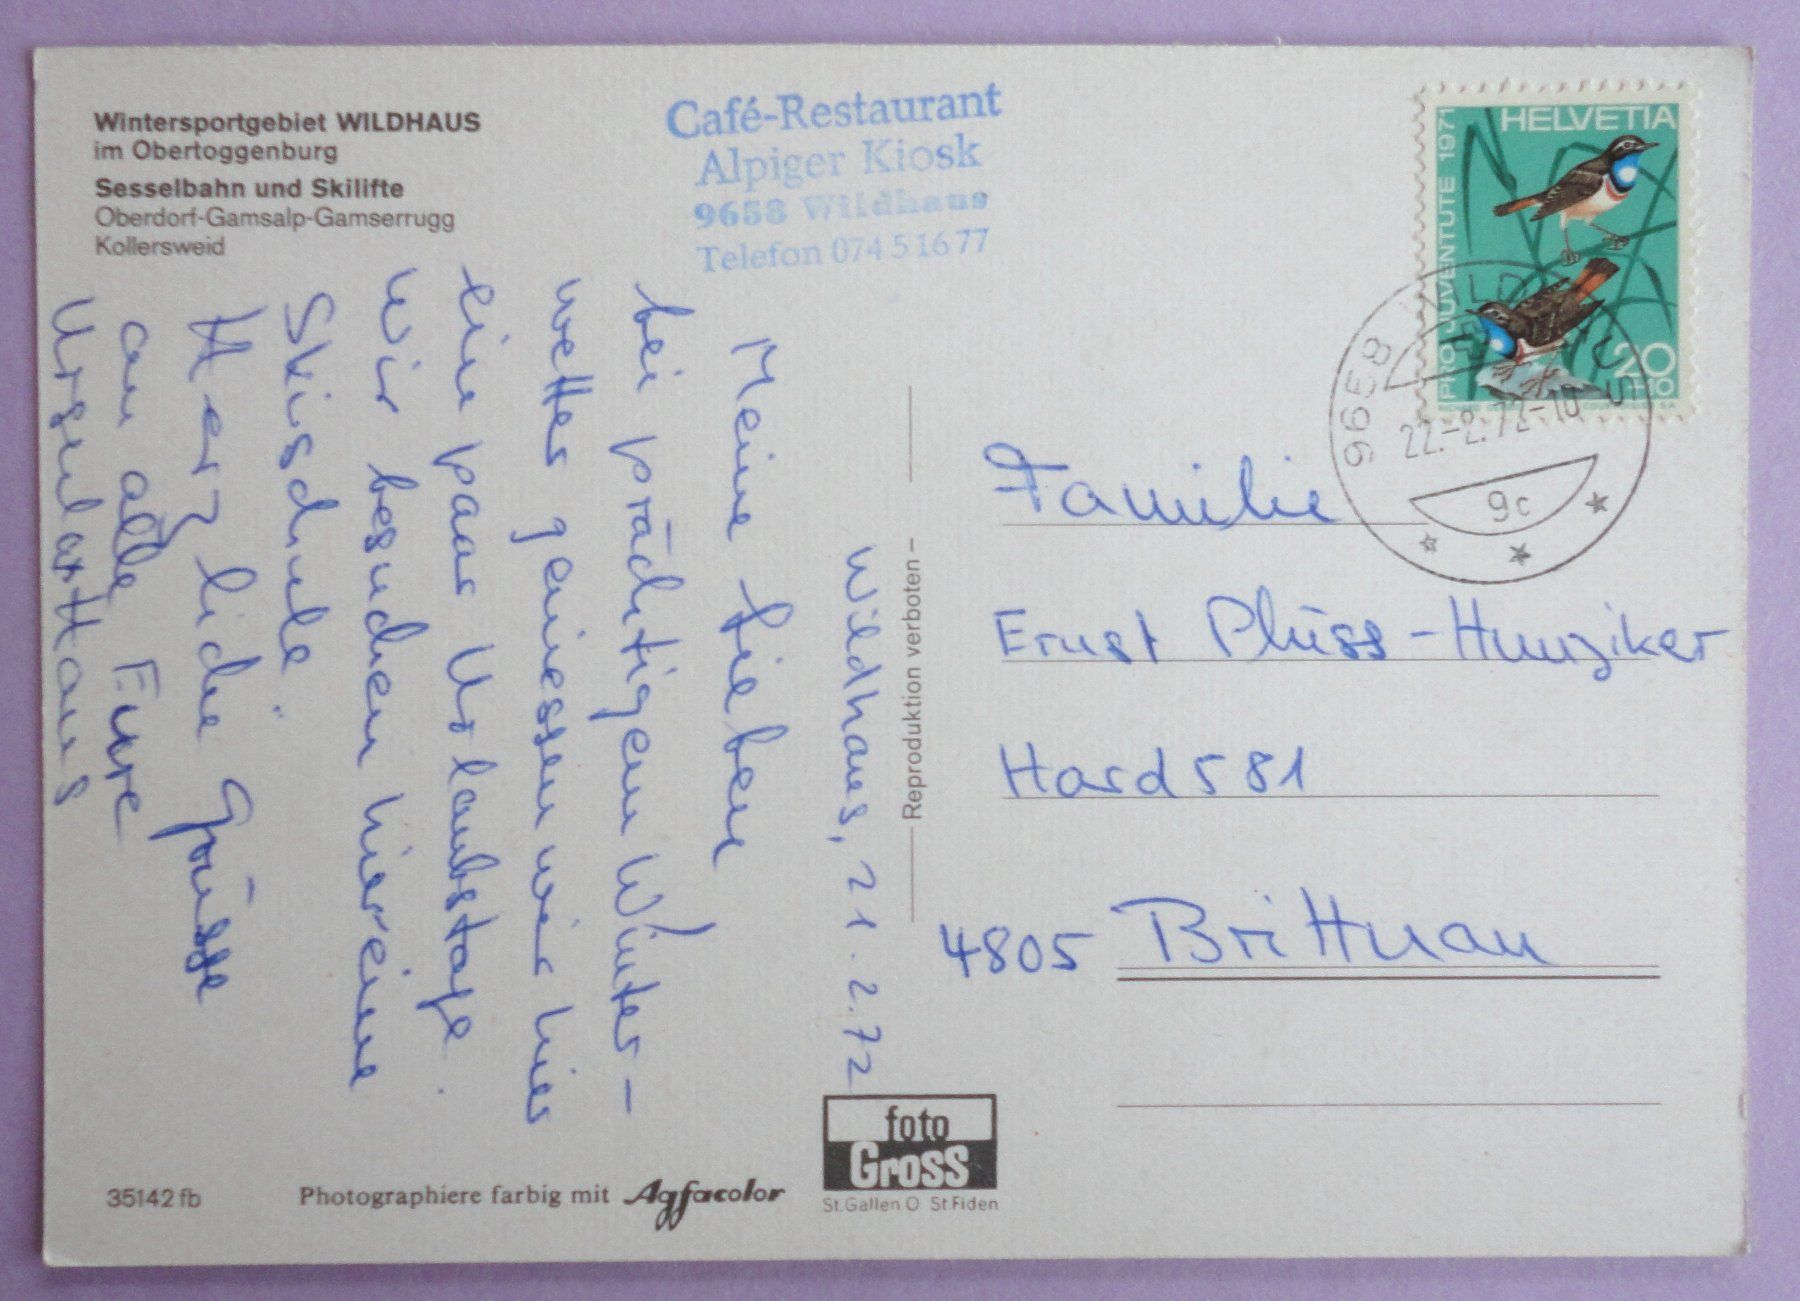 Wintersportgebiet WILDHAUS
im Obertoggenburg
Sesselbahn und Skilifte
Oberdorf-Gamsalp-Gamserrugg
Kollersweid
Café-Restaurant
Alpiger Kiosk
9658 Wildhaus
Telefon 074 5 16 77
HELVETIA
PRO JUVENTUTE 1971
20
+10
9658 WILDHAUS
22.-2.72-10
9c
Wildhaus, 21.2.72
Meine Lieben
bei prächtigem Winter-
wetter geniessen wir hier
ein paar Urlaubstage.
Wir besuchen hier eine
Skischule
Herzliche Grüsse
an alle Eure
Ursula+Hans
Reproduktion verboten
Familie
Ernst Plüss-Hunziker
Hard 581
4805 Brittnau
35142 fb
Photographiere farbig mit Agfacolor
foto
Gross
St.Gallen O St.Fiden